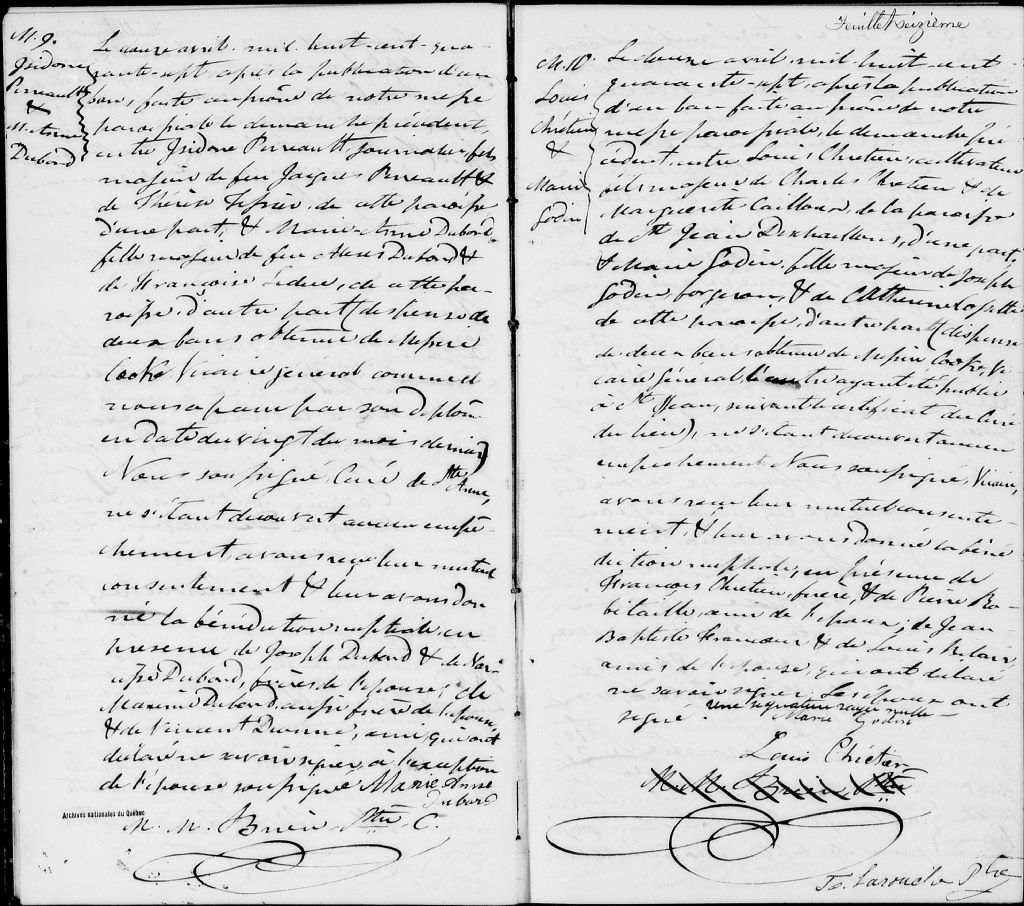 M. 9.
Isidore
Perreault
&
M. Anne
Dubord
Le douze avril mil huit-cent-qua-
rante-sept, après la publication d'un
ban, faite au prône de notre messe
paroissiale le dimanche précédent,
entre Isidore Perreault journalier, fils
majeur de feu Jacques Perreault &
de Thérèse, de cette paroisse
d'une part, & Marie-Anne Dubord,
fille majeure de feu Alexis Dubord &
de Françoise Leduc, de cette pa-
roisse, d'autre part (dispense de
deux bans obtenue de Messire
Cooke Vicaire général comme il
nous appert par son diplôme
en date du vingt du mois dernier)
Nous soussigné, Curé de Ste Anne,
ne s'étant découvert aucun empê-
chement, avons reçu leur mutuel
consentement & leur avons don-
né la bénédiction nuptiale en
présence de Joseph Dubord & de Nar-
cisse Dubord, frères de l'épouse, de
Maxime Dubord, aussi frère de l'épouse,
& de Vincent, ami, qui ont
déclaré ne savoir signer, à l'exception
de l'épouse soussignée Marie Anne
Dubord
M. M. Brien Ptre C.
Archives nationales du Québec
Feuillet seizième
M. 10.
Louis
Chrétien
&
Marie
Godin
Le douze avril mil huit-cent-
quarante-sept, après la publication
d'un ban faite au prône de notre
messe paroissiale, le dimanche pré-
cédent, entre Louis Chretien, cultivateur
fils majeur de Charles Chretien & de
Marguerite Cailloux, de la paroisse
de St Jean Deschaillons, d'une part,
& Marie Godin, fille majeure de Joseph
Godin, forgeron, & de Catherine
de cette paroisse, d'autre part (dispense
de deux bans obtenue de Messire Cooke, Vi-
caire Général, l'autre ayant été publié
à St Jean, suivant le certificat du Curé
du lieu), ne s'étant découvert aucun
empêchement Nous soussigné, Vicaire,
avons reçu leur mutuel consente-
ment, & leur avons donné la béné-
diction nuptiale, en présence de
François Chretien, frère, & de Pierre Ro-
bitaille, ami de l'époux; de Jean-
Baptiste & de Louis
amis de l'épouse, qui ont déclaré
ne savoir signer. Les époux ont
signé. Une signature rayée nulle
Marie Godin
Louis Chrétien
M. M. Brien Ptre
Ptre